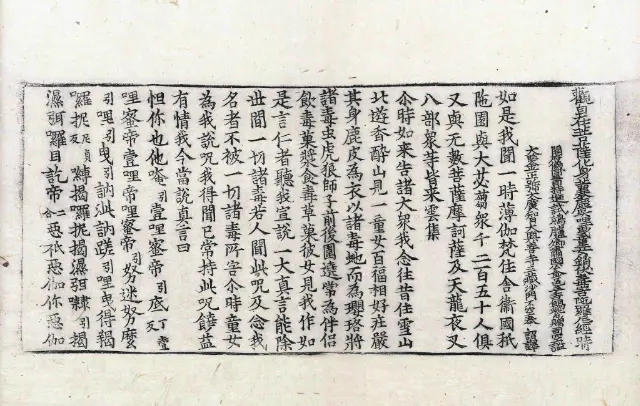 觀自在菩薩化身蘘麌哩曳童女銷伏毒害陀羅尼經
如是我聞一時薄伽梵住舍衛國祇
陁園與大苾蒭衆千二百五十人俱
又與无數菩薩摩訶薩及天龍夜叉
八部衆等皆來雲集
尒時如來告諸大衆我念往昔住雪山
北遊香醉山見一童女百福相好莊嚴
其身鹿皮為衣以諸毒地而為瓔珞將
諸毒虫虎狼師子前後圍遶常為伴侶
飲毒漿食毒草菓彼女見我作如
是言仁者聽我宣說一大真言能除
世間一切諸毒若人聞此呪及念我
名者不被一切諸毒所害尒時童女
為我說呪我得聞已常持此呪饒益
有情我今當說真言曰
怛你也他唵引壹哩蜜帝引底丁壹反
哩蜜帝壹哩帝哩蜜帝引努迷努麼
引哩引曳引訥訕訥蹉引哩曳得羯
囉抳尼貞反嚩揭囉抳揭濕弭隷引揭
濕弭囉目訖帝二合惡祇惡伽你惡伽